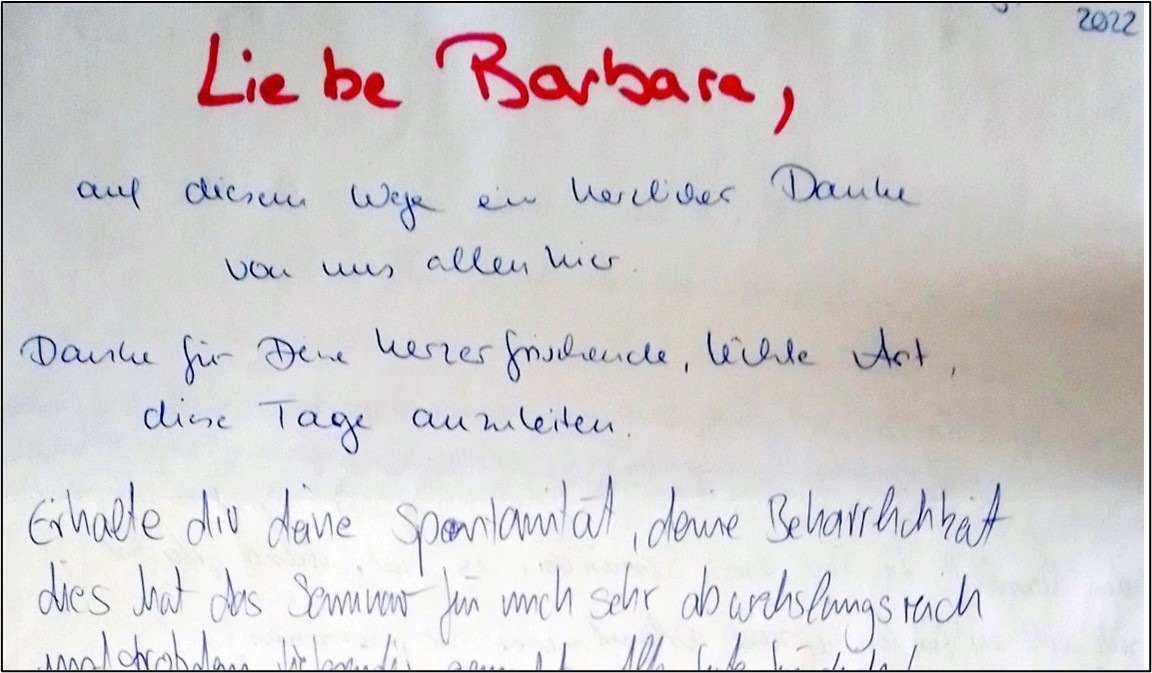 2022
Liebe Barbara,
auf diesem Wege ein herzliches Danke
von uns allen hier.
Danke für Deine herzerfrischende, leichte Art,
diese Tage anzuleiten.
Erhalte dir deine Spontanität, deine Beharrlichkeit
dies hat das Seminar für mich sehr abwechslungsreich